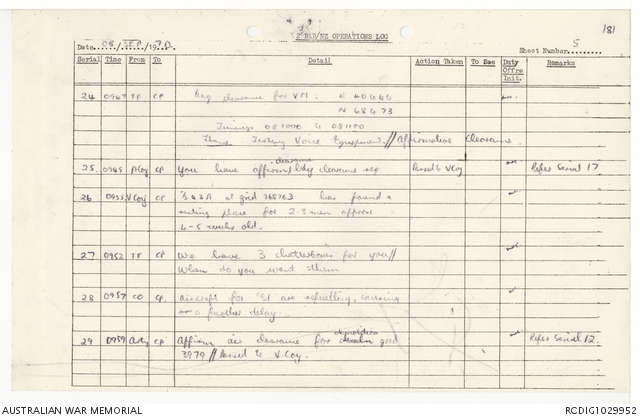 181
2 RAR/NZ OPERATIONS LOG
Date 08/SEP/1970. Sheet Number 5
Serial Time From To Detail Action Taken To See Duty Offrs Init. Remarks
24 0947 TF CP Req clearance for VM. E 40440
N 68473
Timings 081000 to 081100
Testing Voice Equipment// Affirmative Clearance.
25 0948 CP You have affirm bdy clearance Passed to V Coy Refer Serial 17
26 0955 V Coy CP 3 & 3A at grid 768763 has found a
resting place for 2-3 men approx
4-5 weeks old.
27 0952 TF CP We have 3 chatterboxes for you//
When do you want them
28 0957 CO CP Aircraft for '51 are refuelling, causing
a further delay.
29 0959 Arty CP Affirm air clearance for demolition grid
3979 // Passed to V Coy. Refer Serial 12.
AUSTRALIAN WAR MEMORIAL RCDIG1029952